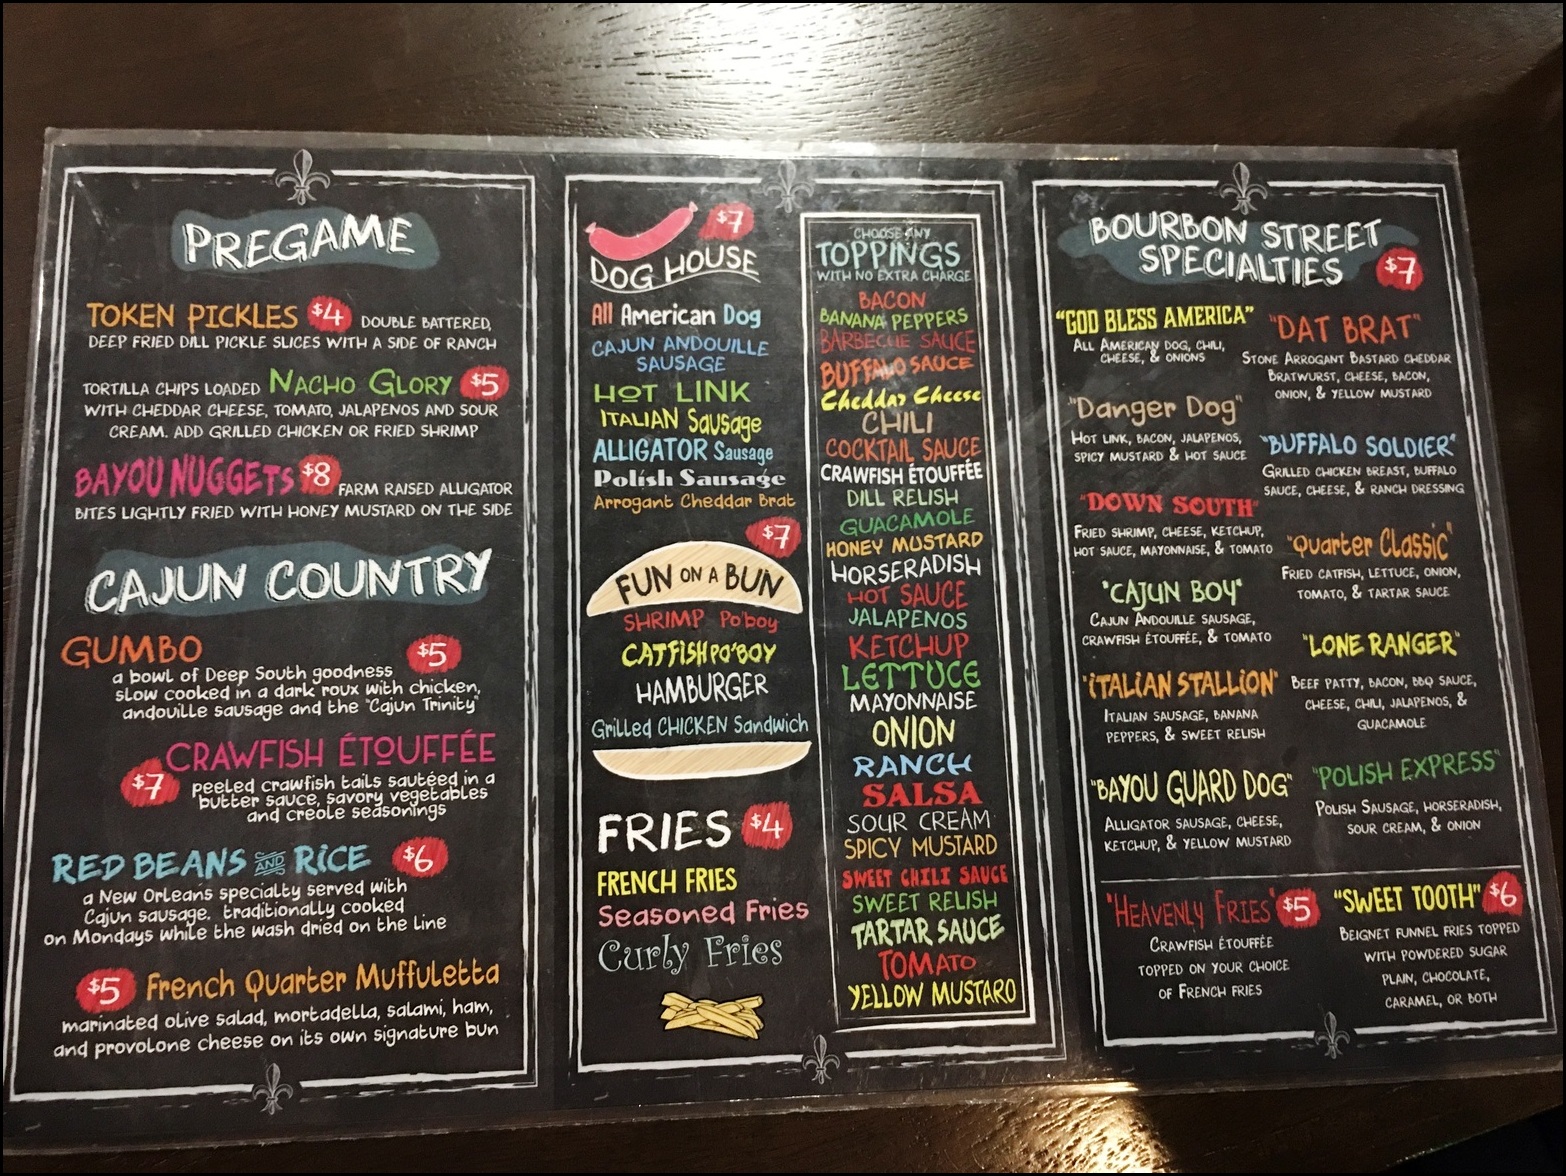 PREGAME
TOKEN PICKLES $4 DOUBLE BATTERED,
DEEP FRIED DILL PICKLE SLICES WITH A SIDE OF RANCH
TORTILLA CHIPS LOADED NACHO GLORY $5
WITH CHEDDAR CHEESE, TOMATO, JALAPENOS AND SOUR
CREAM. ADD GRILLED CHICKEN OR FRIED SHRIMP
BAYOU NUGGETS $8 FARM RAISED ALLIGATOR
BITES LIGHTLY FRIED WITH HONEY MUSTARD ON THE SIDE
CAJUN COUNTRY
GUMBO $5
a bowl of Deep South goodness
slow cooked in a dark roux with chicken,
andouille sausage and the "Cajun Trinity"
CRAWFISH ÉTOUFFÉE
$7 peeled crawfish tails sautéed in a
butter sauce, savory vegetables
and creole seasonings
RED BEANS AND RICE $6
a New Orleans specialty served with
Cajun sausage. traditionally cooked
on Mondays while the wash dried on the line
$5 French Quarter Muffuletta
marinated olive salad, mortadella, salami, ham,
and provolone cheese on its own signature bun
$7
DOG HOUSE
All American Dog
CAJUN ANDOUILLE
SAUSAGE
HOT LINK
ITALIAN Sausage
ALLIGATOR Sausage
Polish Sausage
Arrogant Cheddar Brat
$7
FUN ON A BUN
SHRIMP Po'boy
CATFISH PO'BOY
HAMBURGER
Grilled CHICKEN Sandwich
FRIES $4
FRENCH FRIES
Seasoned Fries
Curly Fries
CHOOSE ANY
TOPPINGS
WITH NO EXTRA CHARGE
BACON
BANANA PEPPERS
BARBECUE SAUCE
BUFFALO SAUCE
Cheddar Cheese
CHILI
COCKTAIL SAUCE
CRAWFISH ÉTOUFFÉE
DILL RELISH
GUACAMOLE
HONEY MUSTARD
HORSERADISH
HOT SAUCE
JALAPENOS
KETCHUP
LETTUCE
MAYONNAISE
ONION
RANCH
SALSA
SOUR CREAM
SPICY MUSTARD
SWEET CHILI SAUCE
SWEET RELISH
TARTAR SAUCE
TOMATO
YELLOW MUSTARD
BOURBON STREET
SPECIALTIES $7
"GOD BLESS AMERICA"
ALL AMERICAN DOG, CHILI,
CHEESE, & ONIONS
"Danger Dog"
HOT LINK, BACON, JALAPENOS,
SPICY MUSTARD & HOT SAUCE
"DOWN SOUTH"
FRIED SHRIMP, CHEESE, KETCHUP,
HOT SAUCE, MAYONNAISE, & TOMATO
"CAJUN BOY"
CAJUN ANDOUILLE SAUSAGE,
CRAWFISH ÉTOUFFÉE, & TOMATO
"ITALIAN STALLION"
ITALIAN SAUSAGE, BANANA
PEPPERS, & SWEET RELISH
"BAYOU GUARD DOG"
ALLIGATOR SAUSAGE, CHEESE,
KETCHUP, & YELLOW MUSTARD
"DAT BRAT"
STONE ARROGANT BASTARD CHEDDAR
BRATWURST, CHEESE, BACON,
ONION, & YELLOW MUSTARD
"BUFFALO SOLDIER"
GRILLED CHICKEN BREAST, BUFFALO
SAUCE, CHEESE, & RANCH DRESSING
"Quarter Classic"
FRIED CATFISH, LETTUCE, ONION,
TOMATO, & TARTAR SAUCE
"LONE RANGER"
BEEF PATTY, BACON, BBQ SAUCE,
CHEESE, CHILI, JALAPENOS, &
GUACAMOLE
"POLISH EXPRESS"
POLISH SAUSAGE, HORSERADISH,
SOUR CREAM, & ONION
"HEAVENLY FRIES" $5
CRAWFISH ÉTOUFFÉE
TOPPED ON YOUR CHOICE
OF FRENCH FRIES
"SWEET TOOTH" $6
BEIGNET FUNNEL FRIES TOPPED
WITH POWDERED SUGAR
PLAIN, CHOCOLATE,
CARAMEL, OR BOTH